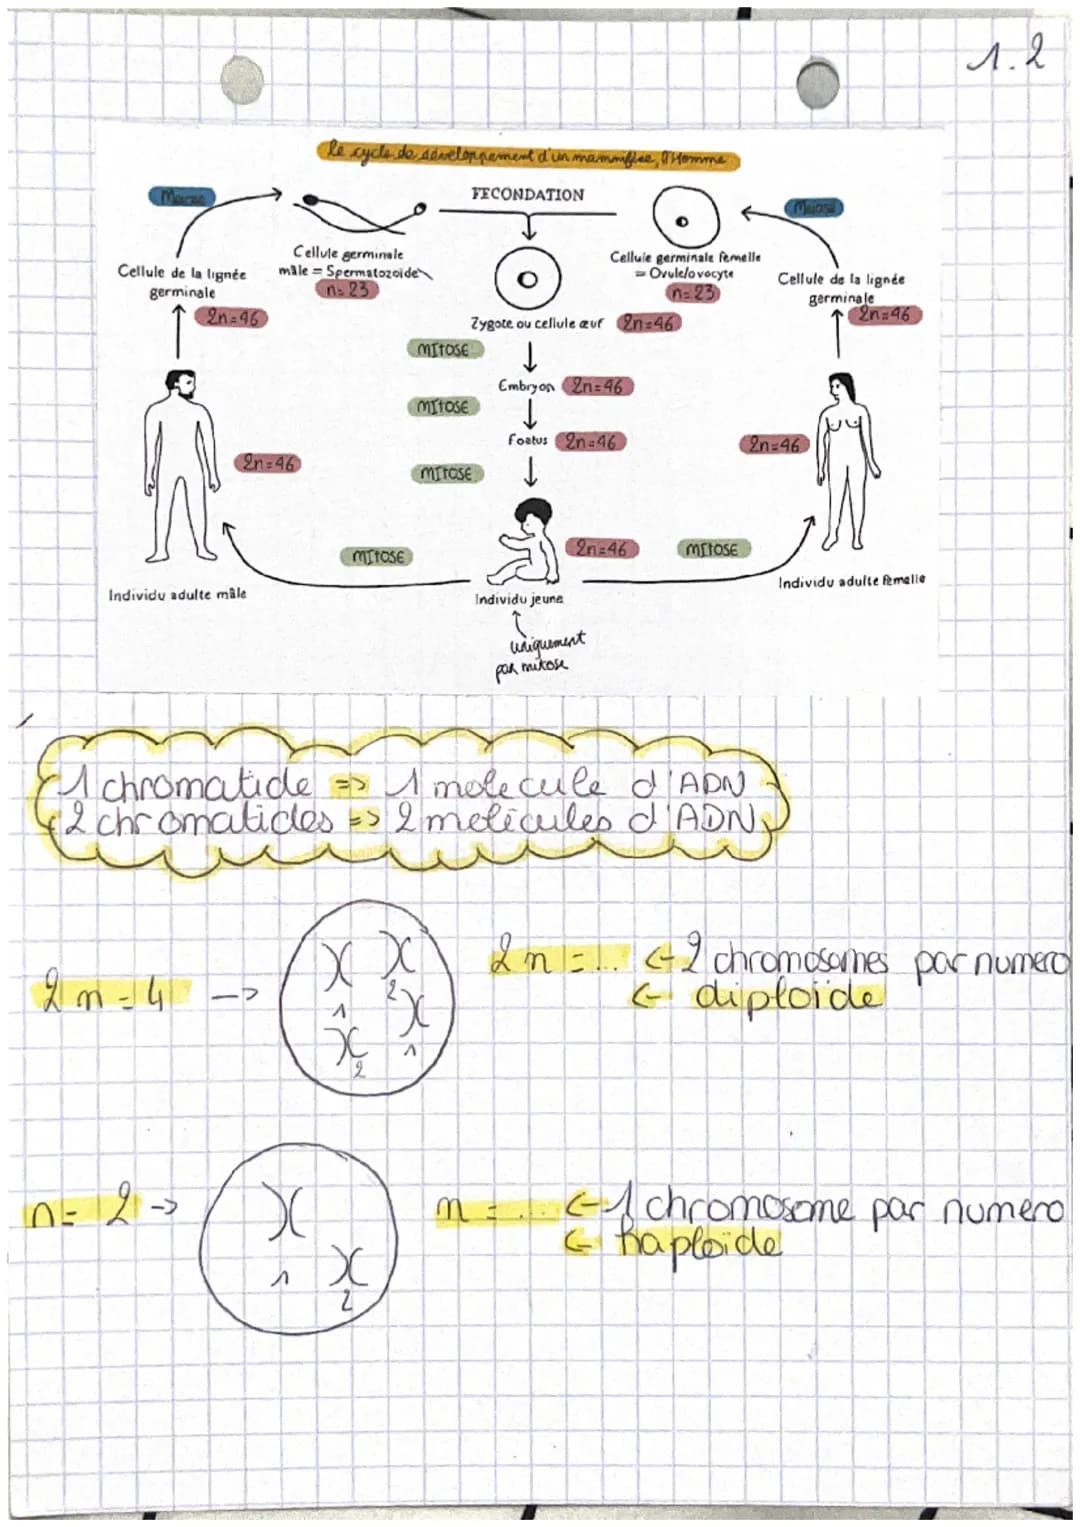 1.2
Le cycle de développement d'un mammifère, l'Homme
Meiose
FECONDATION
Meiose
Cellule germinale
mâle = Spermatozoïde
n=23
Cellule germinale femelle
= Ovule/ovocyte
n=23
Cellule de la lignée
germinale
2n=46
Cellule de la lignée
germinale
2n=46
Zygote ou cellule œuf 2n=46
MITOSE
Embryon 2n=46
MITOSE
Foetus 2n=46
MITOSE
2n=46
2n=46
2n=46
MITOSE
MITOSE
Individu adulte mâle
Individu jeune
Individu adulte femelle
uniquement
par mitose
1 chromatide => 1 molecule d'ADN
2 chromatides => 2 molécules d'ADN
2n=4 -->
1
2
1
2
2n=... <- 2 chromosomes par numero
<- diploïde
n=2 ->
1
2
n=... <- 1 chromosome par numero
<- haploïde